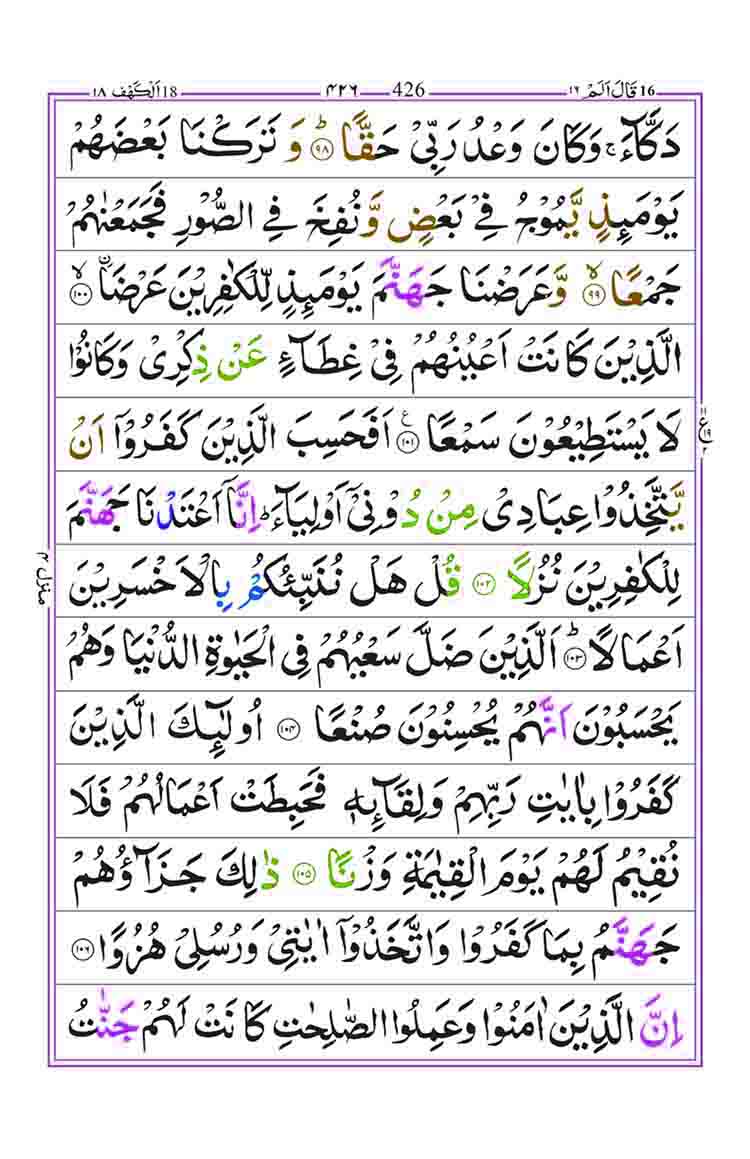 18 اَلْكَهْف ١٨ 426 ٤٢٦ 16 قَالَ اَلَمْ ١٦
دَكَّآءَ ۚ وَكَانَ وَعْدُ رَبِّیْ حَقًّا ؕ﴿۹۸﴾ وَ تَرَكْنَا بَعْضَهُمْ
یَوْمَىِٕذٍ یَّمُوْجُ فِیْ بَعْضٍ وَّنُفِخَ فِی الصُّوْرِ فَجَمَعْنٰهُمْ
جَمْعًا ۙ﴿۹۹﴾ وَّعَرَضْنَا جَهَنَّمَ یَوْمَىِٕذٍ لِّلْكٰفِرِیْنَ عَرْضَا ۙ﴿۱۰۰﴾
الَّذِیْنَ كَانَتْ اَعْیُنُهُمْ فِیْ غِطَآءٍ عَنْ ذِكْرِیْ وَكَانُوْا
لَا یَسْتَطِیْعُوْنَ سَمْعًا ﴿۱۰۱﴾ اَفَحَسِبَ الَّذِیْنَ كَفَرُوْۤا اَنْ
یَّتَّخِذُوْا عِبَادِیْ مِنْ دُوْنِیْۤ اَوْلِیَآءَ ؕ اِنَّاۤ اَعْتَدْنَا جَهَنَّمَ
لِلْكٰفِرِیْنَ نُزُلًا ﴿۱۰۲﴾ قُلْ هَلْ نُنَبِّئُكُمْ بِالْاَخْسَرِیْنَ
اَعْمَالًا ؕ﴿۱۰۳﴾ اَلَّذِیْنَ ضَلَّ سَعْیُهُمْ فِی الْحَیٰوةِ الدُّنْیَا وَهُمْ
یَحْسَبُوْنَ اَنَّهُمْ یُحْسِنُوْنَ صُنْعًا ﴿۱۰۴﴾ اُولٰٓىِٕكَ الَّذِیْنَ
كَفَرُوْا بِاٰیٰتِ رَبِّهِمْ وَلِقَآىِٕهٖ فَحَبِطَتْ اَعْمَالُهُمْ فَلَا
نُقِیْمُ لَهُمْ یَوْمَ الْقِیٰمَةِ وَزْنًا ﴿۱۰۵﴾ ذٰلِكَ جَزَآؤُهُمْ
جَهَنَّمُ بِمَا كَفَرُوْا وَاتَّخَذُوْۤا اٰیٰتِیْ وَرُسُلِیْ هُزُوًا ﴿۱۰۶﴾
اِنَّ الَّذِیْنَ اٰمَنُوْا وَعَمِلُوا الصّٰلِحٰتِ كَانَتْ لَهُمْ جَنّٰتُ
ع ۱۱ ۱۹ ۲
منزل ۴